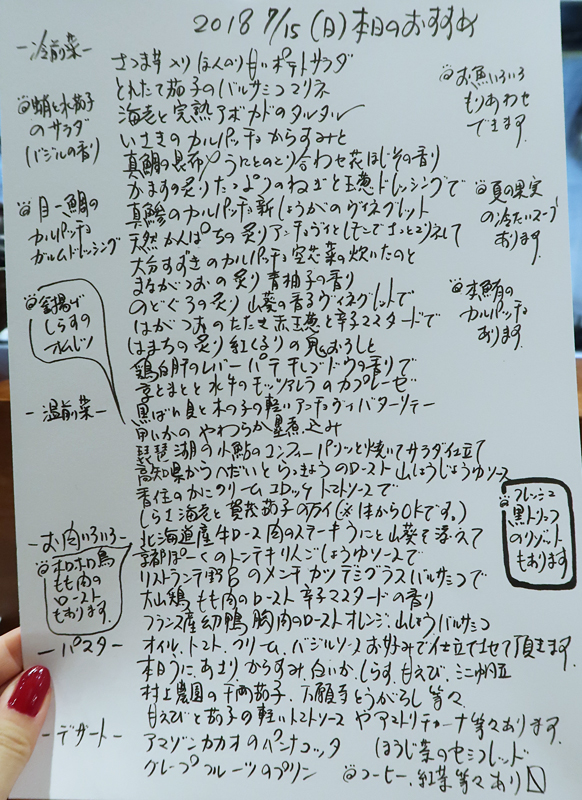 2018 7/15 (日) 本日のおすすめ
-冷前菜-
さつま芋入り ほんのり甘いポテトサラダ
とれたて茄子のバルサミコマリネ
海老と完熟アボカドのタルタル
いさきのカルパッチョからすみと
真鯛の昆布〆うにとのとり合わせ花ほじその香り
かますの炙りたっぷりのねぎと玉葱ドレッシングで
真鯵のカルパッチョ新しょうがのヴィネグレット
天然かんぱちの炙りアンチョヴィとレモンでさっとマリネして
大分すずきのカルパッチョ空芯菜の炊いたのと
まるかつおの炙り 青柚子の香り
のどぐろの炙り 山葵の香るヴィネグレットで
はがつおのたたき赤玉葱と辛子マスタードで
はまちの炙り紅くるりの鬼おろしと
鶏白肝のレバーパテ干しブドウの香りで
幸とまとと水牛のモッツァレラのカプレーゼ
@蛸と水茄子
のサラダ
(バジルの香り
@目一鯛の
カルパッチョ
ガルムドレッシング
@釜揚げ
しらすの
オムレツ
@お魚いろいろ
もりあわせ
できます
@夏の果実
の冷たいスープ
あります
@本鮪の
カルパッチョ
あります
-温前菜-
黒ばい貝と木の子の軽いアンチョヴィバターソテー
甲いかのやわらか墨煮込み
琵琶湖の小鮎のコンフィーパリッと焼いてサラダ仕立て
高知県からへだいとらっきょうのロースト山しょうじょうゆソース
香住のかにクリームコロッケ トマトソースで
しらす海老と賀茂茄子のパイ(※1体からOKです。)
@フレッシュ
黒トリュフ
のリゾット
もあります
-お肉いろいろ-
北海道産牛ロース肉のステーキうにと山葵を添えて
京都ぽーくのトンテキりんごしょうゆソースで
リストランテ野呂のメンチカツデミグラスバルサミコで
大山鶏もも肉のロースト 辛子マスタードの香り
フランス産幼鴨胸肉のローストオレンジ山しょうバルサミコ
@ホロホロ鳥
もも肉の
ロースト
もあります
-パスタ-
オイル、トマト、クリーム、バジルソースお好みで仕立てさせて頂きます。
本日うに、あさり からすみ、白いか、しらす、甘えび、ミニ帆立
村上農園の千両茄子、万願寺とうがらし等々
甘えびと茄子の軽いトマトソースやアマトリチャーナ等々あります
-デザート-
アマゾンカカオのパンナコッタ
ほうじ茶のセミフレッド
グレープフルーツのプリン
@コーヒー、紅茶等々あり